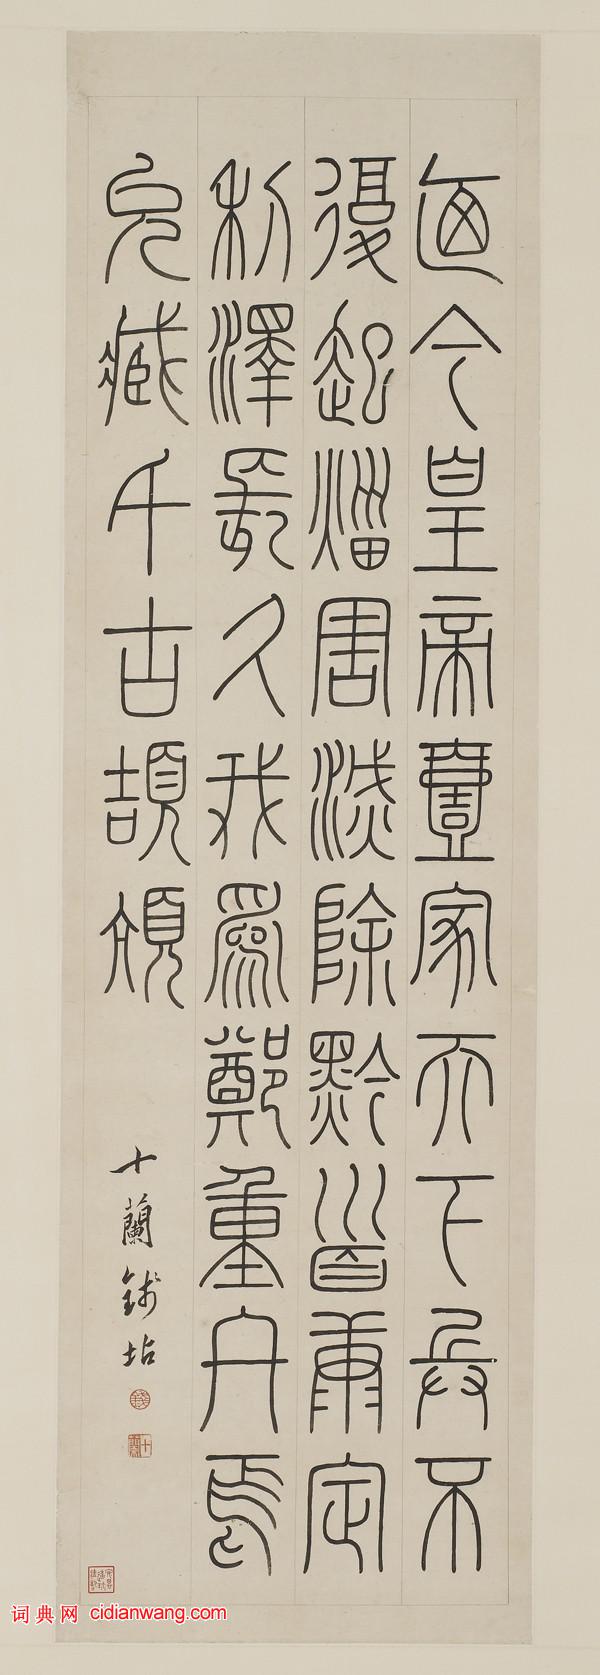 迺今皇帝壹家天下兵不
復起災害滅除黔首康定
利澤長久我為鄭重
藏千古頡頏
十蘭錢坫
十蘭
词典网 cidianwang.com